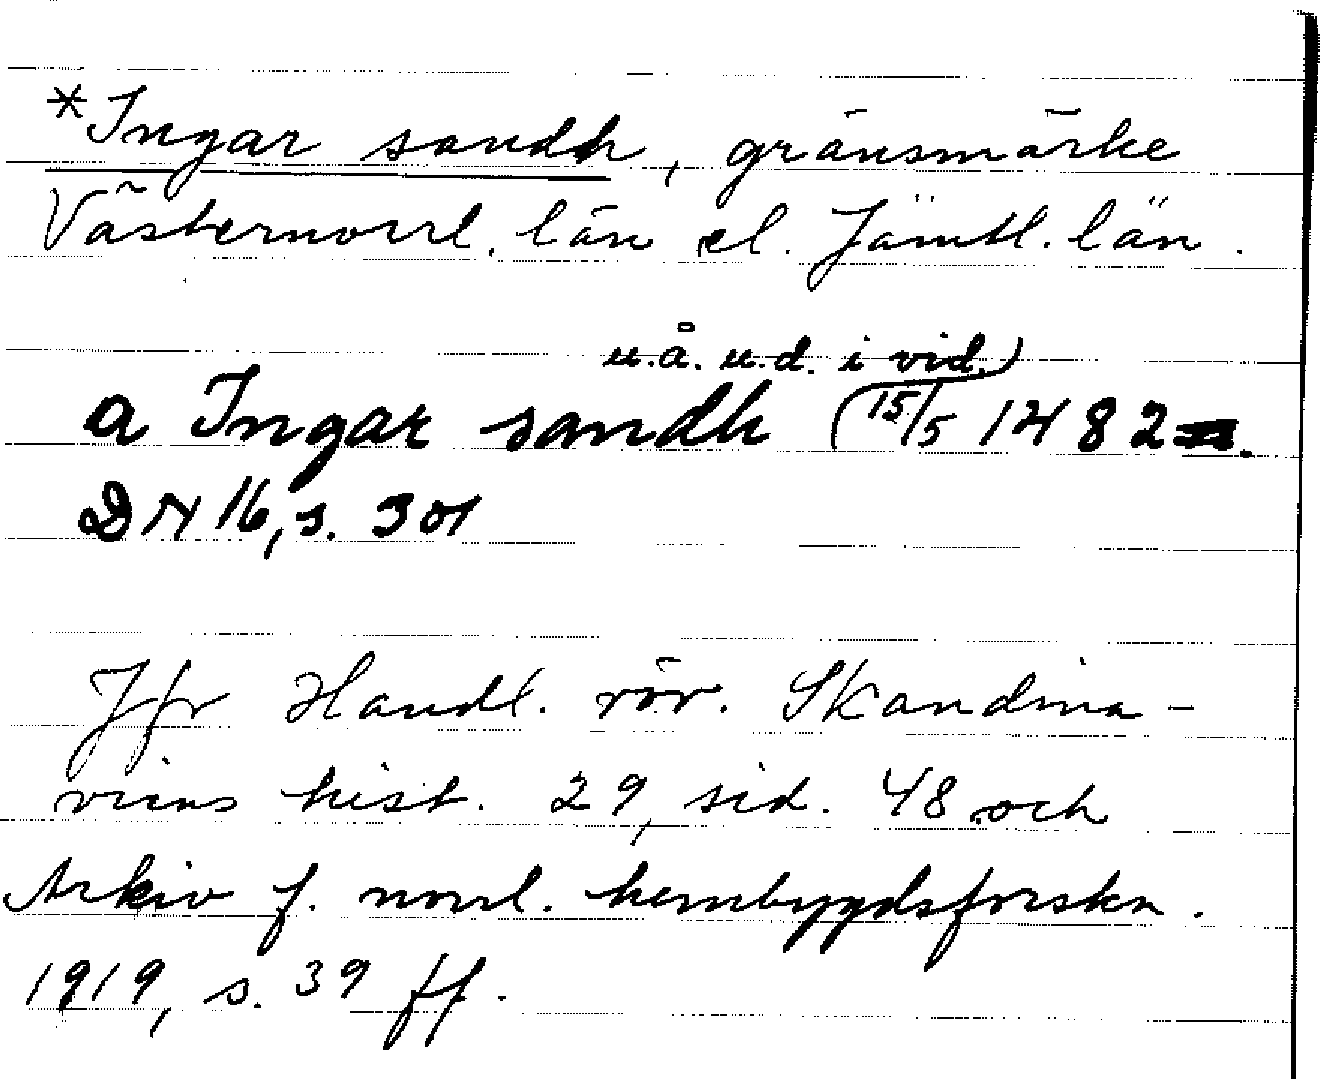 *Ingar sandh, gränsmärke
Västernorrl. län el. Jämtl. län.
u.å. u.d. i vid.)
a Ingar sandh (15/5 1482.
DN 16, s. 301
Jfr Handl. rör. Skandina-
viens hist. 29, sid. 48 och
Arkiv f. norrl. hembygdsforskn.
1919, s. 39 ff.